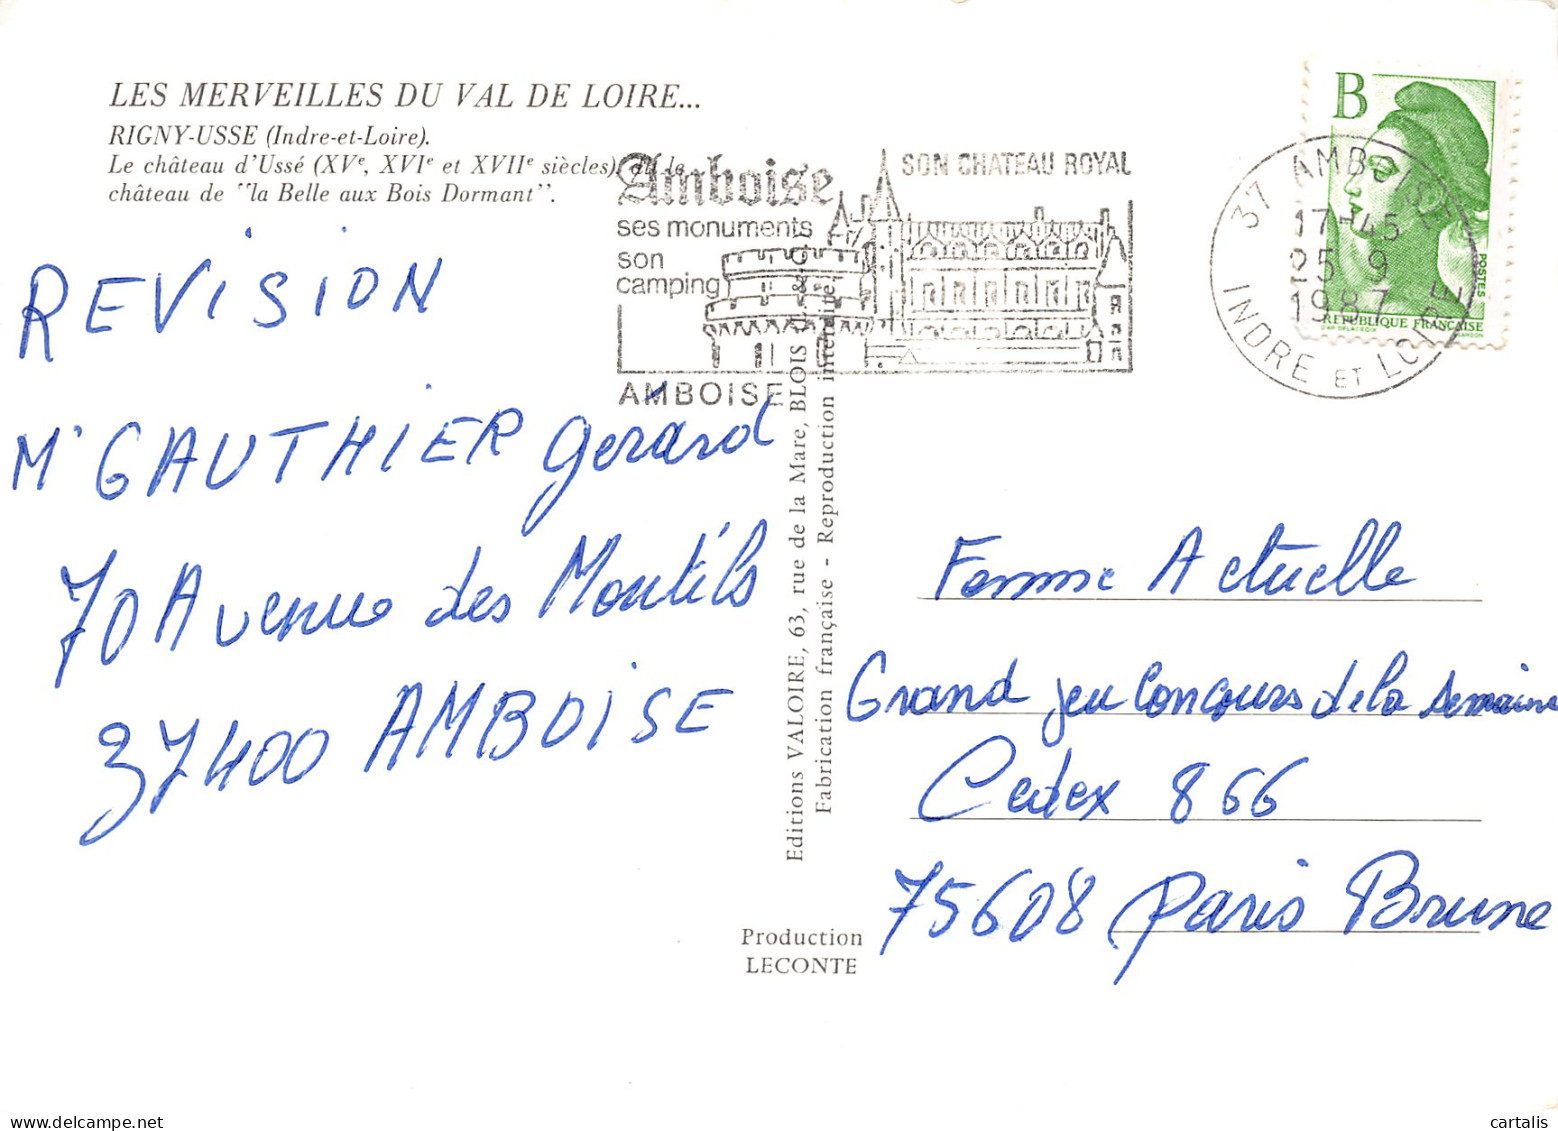 LES MERVEILLES DU VAL DE LOIRE...
RIGNY-USSE (Indre-et-Loire).
Le château d'Ussé (XVe, XVIe et XVIIe siècles), dit le
château de "la Belle aux Bois Dormant".
Amboise
SON CHATEAU ROYAL
ses monuments
son
camping
AMBOISE
37 AMBOISE
17-45
25 9
1987
INDRE ET LOIRE
B
POSTES
REPUBLIQUE FRANÇAISE
REVISION
Mr GAUTHIER Gérard
70 Avenue des Montils
37400 AMBOISE
Editions VALOIRE, 63, rue de la Mare, BLOIS
Fabrication française - Reproduction interdite
Femme Actuelle
Grand jeu Concours de la semaine
Cedex 866
75608 Paris Brune
Production
LECONTE
cartalis